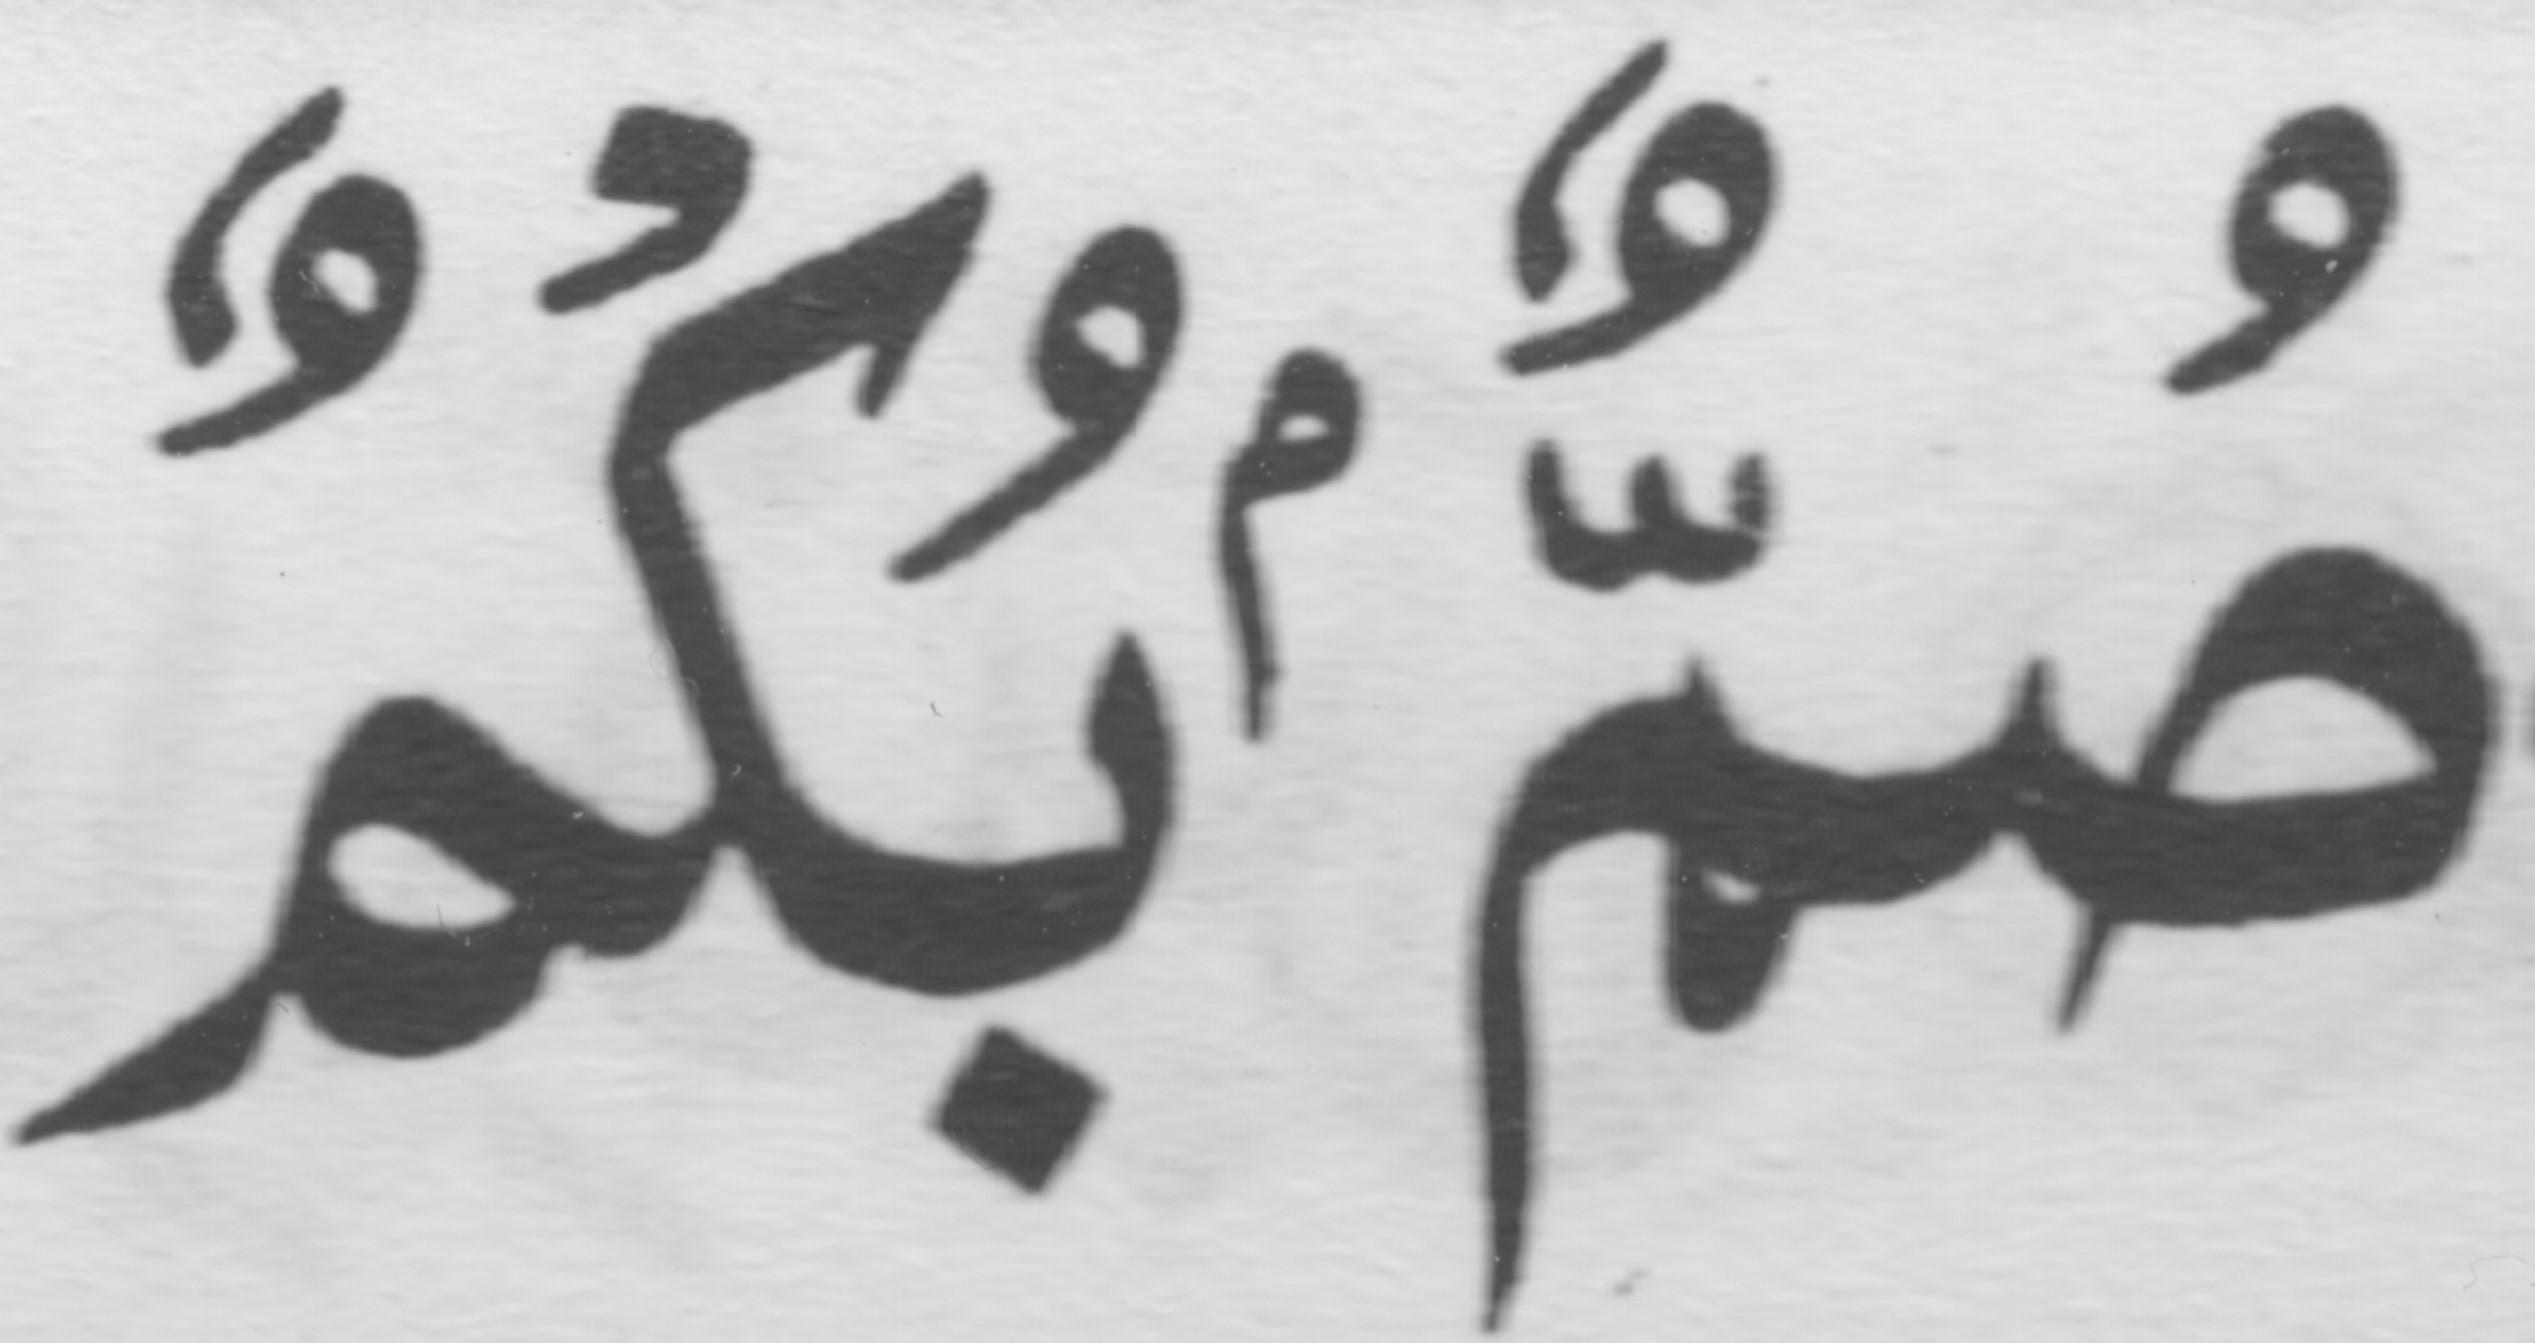 صُمٌّۢ بُكْمٌ